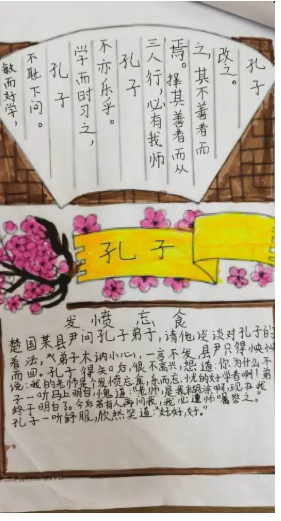 敏而好学,
不耻下问。
孔子
学而时习之,
不亦乐乎。
孔子
三人行,必有我师
焉。择其善者而从
之,其不善者而
改之。
孔子
孔子
发愤忘食
楚国某县尹问孔子弟子,请他谈谈对孔子的
看法,弟子木讷小心,一言不发,县尹只得怏怏
而回。孔子得知后,很不高兴,怨道:你为什么不
说:我的老师是个发愤忘食,乐而忘忧的好学者啊!弟
子一听马上明白,愧道:"老师,是我糊涂啊,现在我
终于明白了。今后若有人再问我,我必遵师嘱答之。"
孔子一听舒服,欣然笑道:"好好,好。"